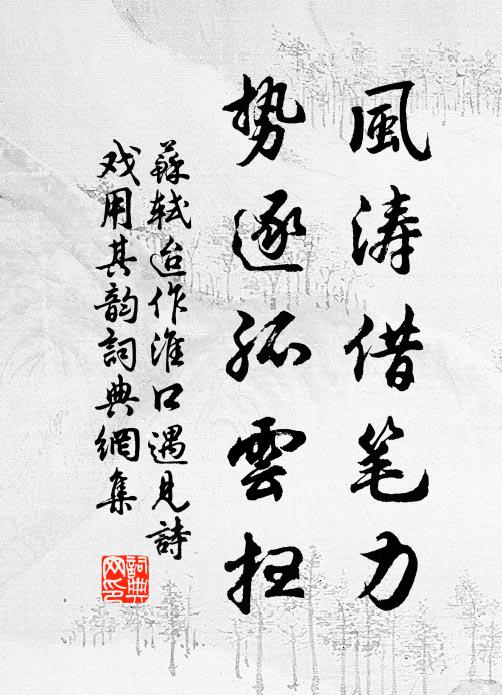 風涛借笔力
势逐孤雲扫
蘇軾迨作淮口遇見詩
戏用其韵詞典網集
詞典
网印